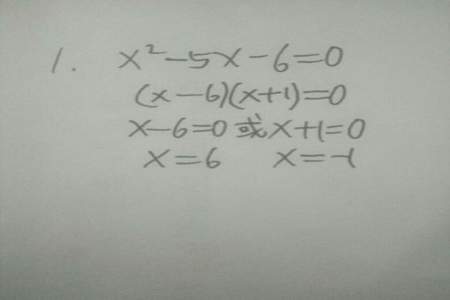 1. x²-5x-6=0
(x-6)(x+1)=0
x-6=0 或 x+1=0
x=6 x=-1